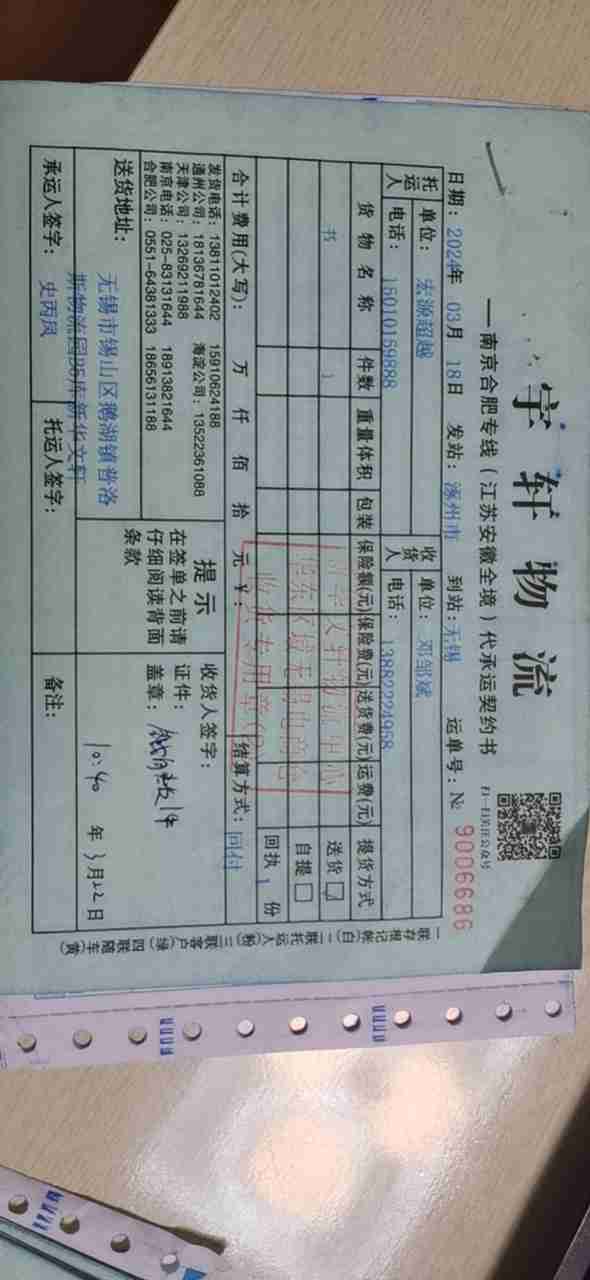 宇轩物流
—南京合肥专线（江苏安徽全境）代承运契约书
扫一扫关注公众号
日期：2024年 03月 18日 发站：涿州市 到站：无锡 运单号：№ 9006686
托运人 单位：宏源超越 收货人 单位：邓邹斌
电话：15010159888 电话：13882224968
货物名称 件数 重量体积 包装 保险额(元) 保险费(元) 送货费(元) 运费(元) 提货方式
书 1 送货
自提
回执 1 份
合计费用(大写)： 万 仟 佰 拾 元 ￥： 结算方式：回付
发货电话：13811012402 15910624188
通州公司：18136781644 海淀公司：13522361088
天津公司：13269211988
南京电话：025-83131644 18913821644
合肥公司：0551-64381333 18656131188
提示
在签单之前请
仔细阅读背面
条款
收货人签字：
证件：
盖章：
10:40 年 3月22日
送货地址：
无锡市锡山区鹅湖镇普洛
斯物流园B5库新华文轩
承运人签字：史丙凤 托运人签字： 备注：
一联存报记帐(白) 二联托运人(粉) 三联客户(绿) 四联随车(黄)
华东区域无锡电商仓
收货专用章